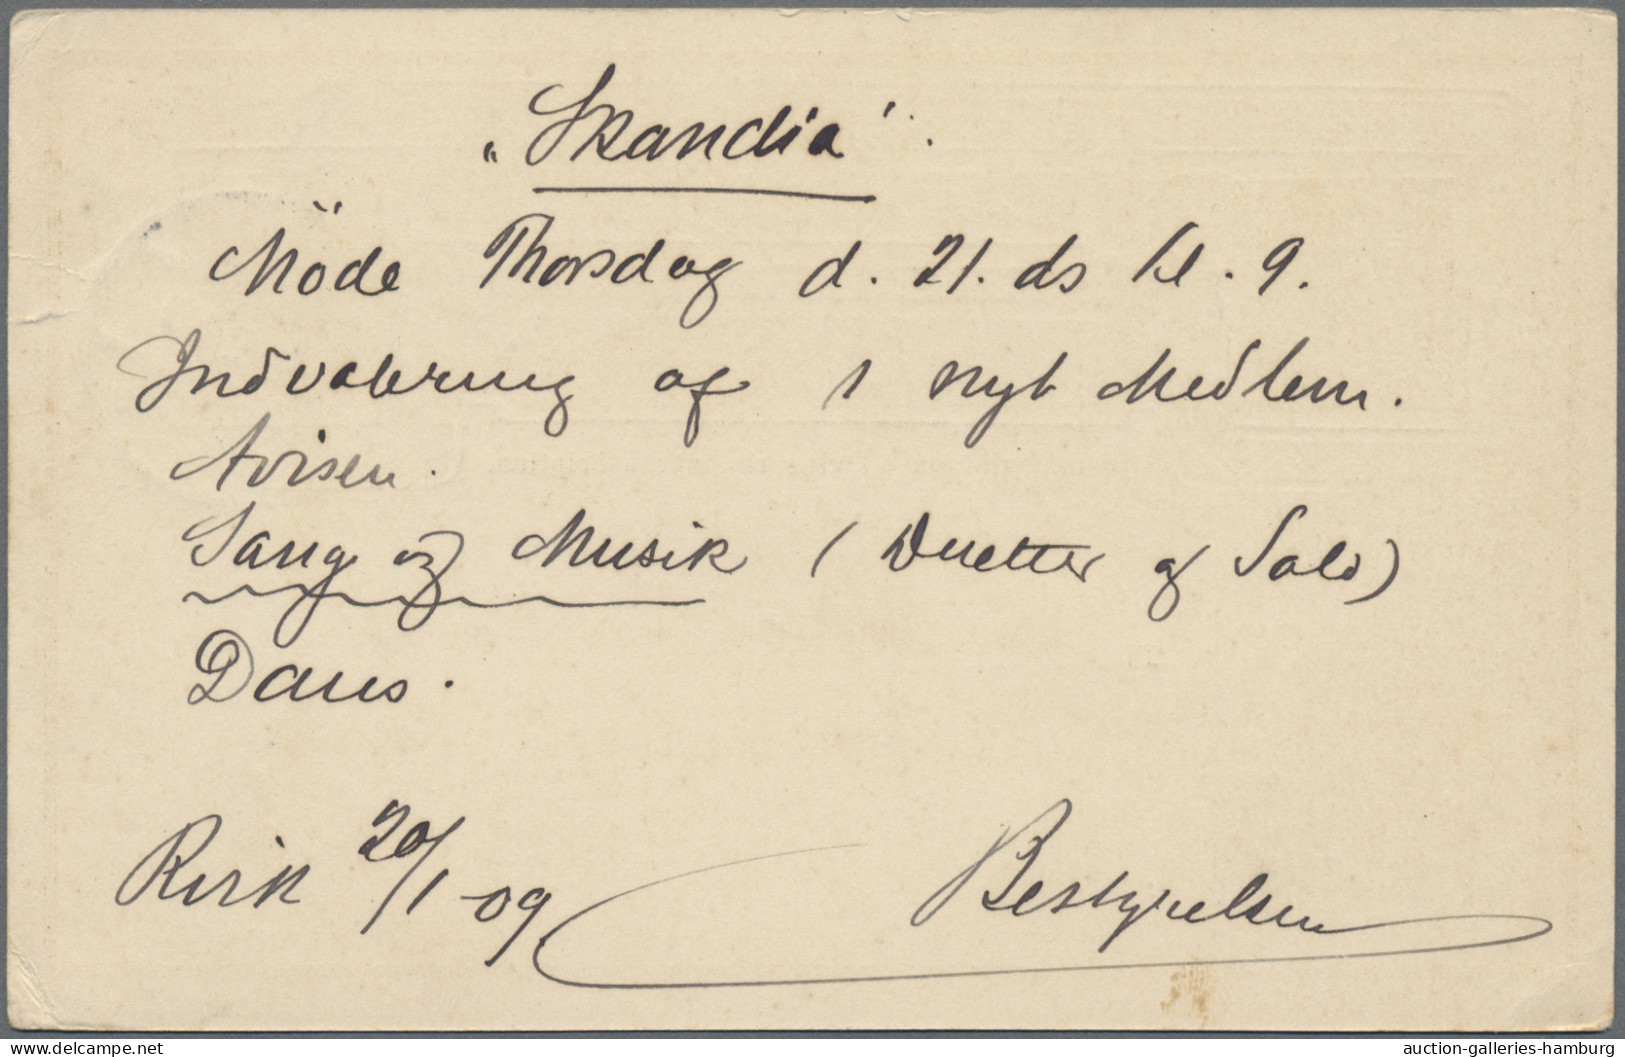 „Skandia“.
Möde Thorsdag d. 21. ds kl. 9.
Indvotering af 1 nyt Medlem.
Avisen.
Sang og Musik (Duetter og Solo)
Dans.
20/1-09
Bestyrelsen
delcampe.net
auction-galleries-hamburg